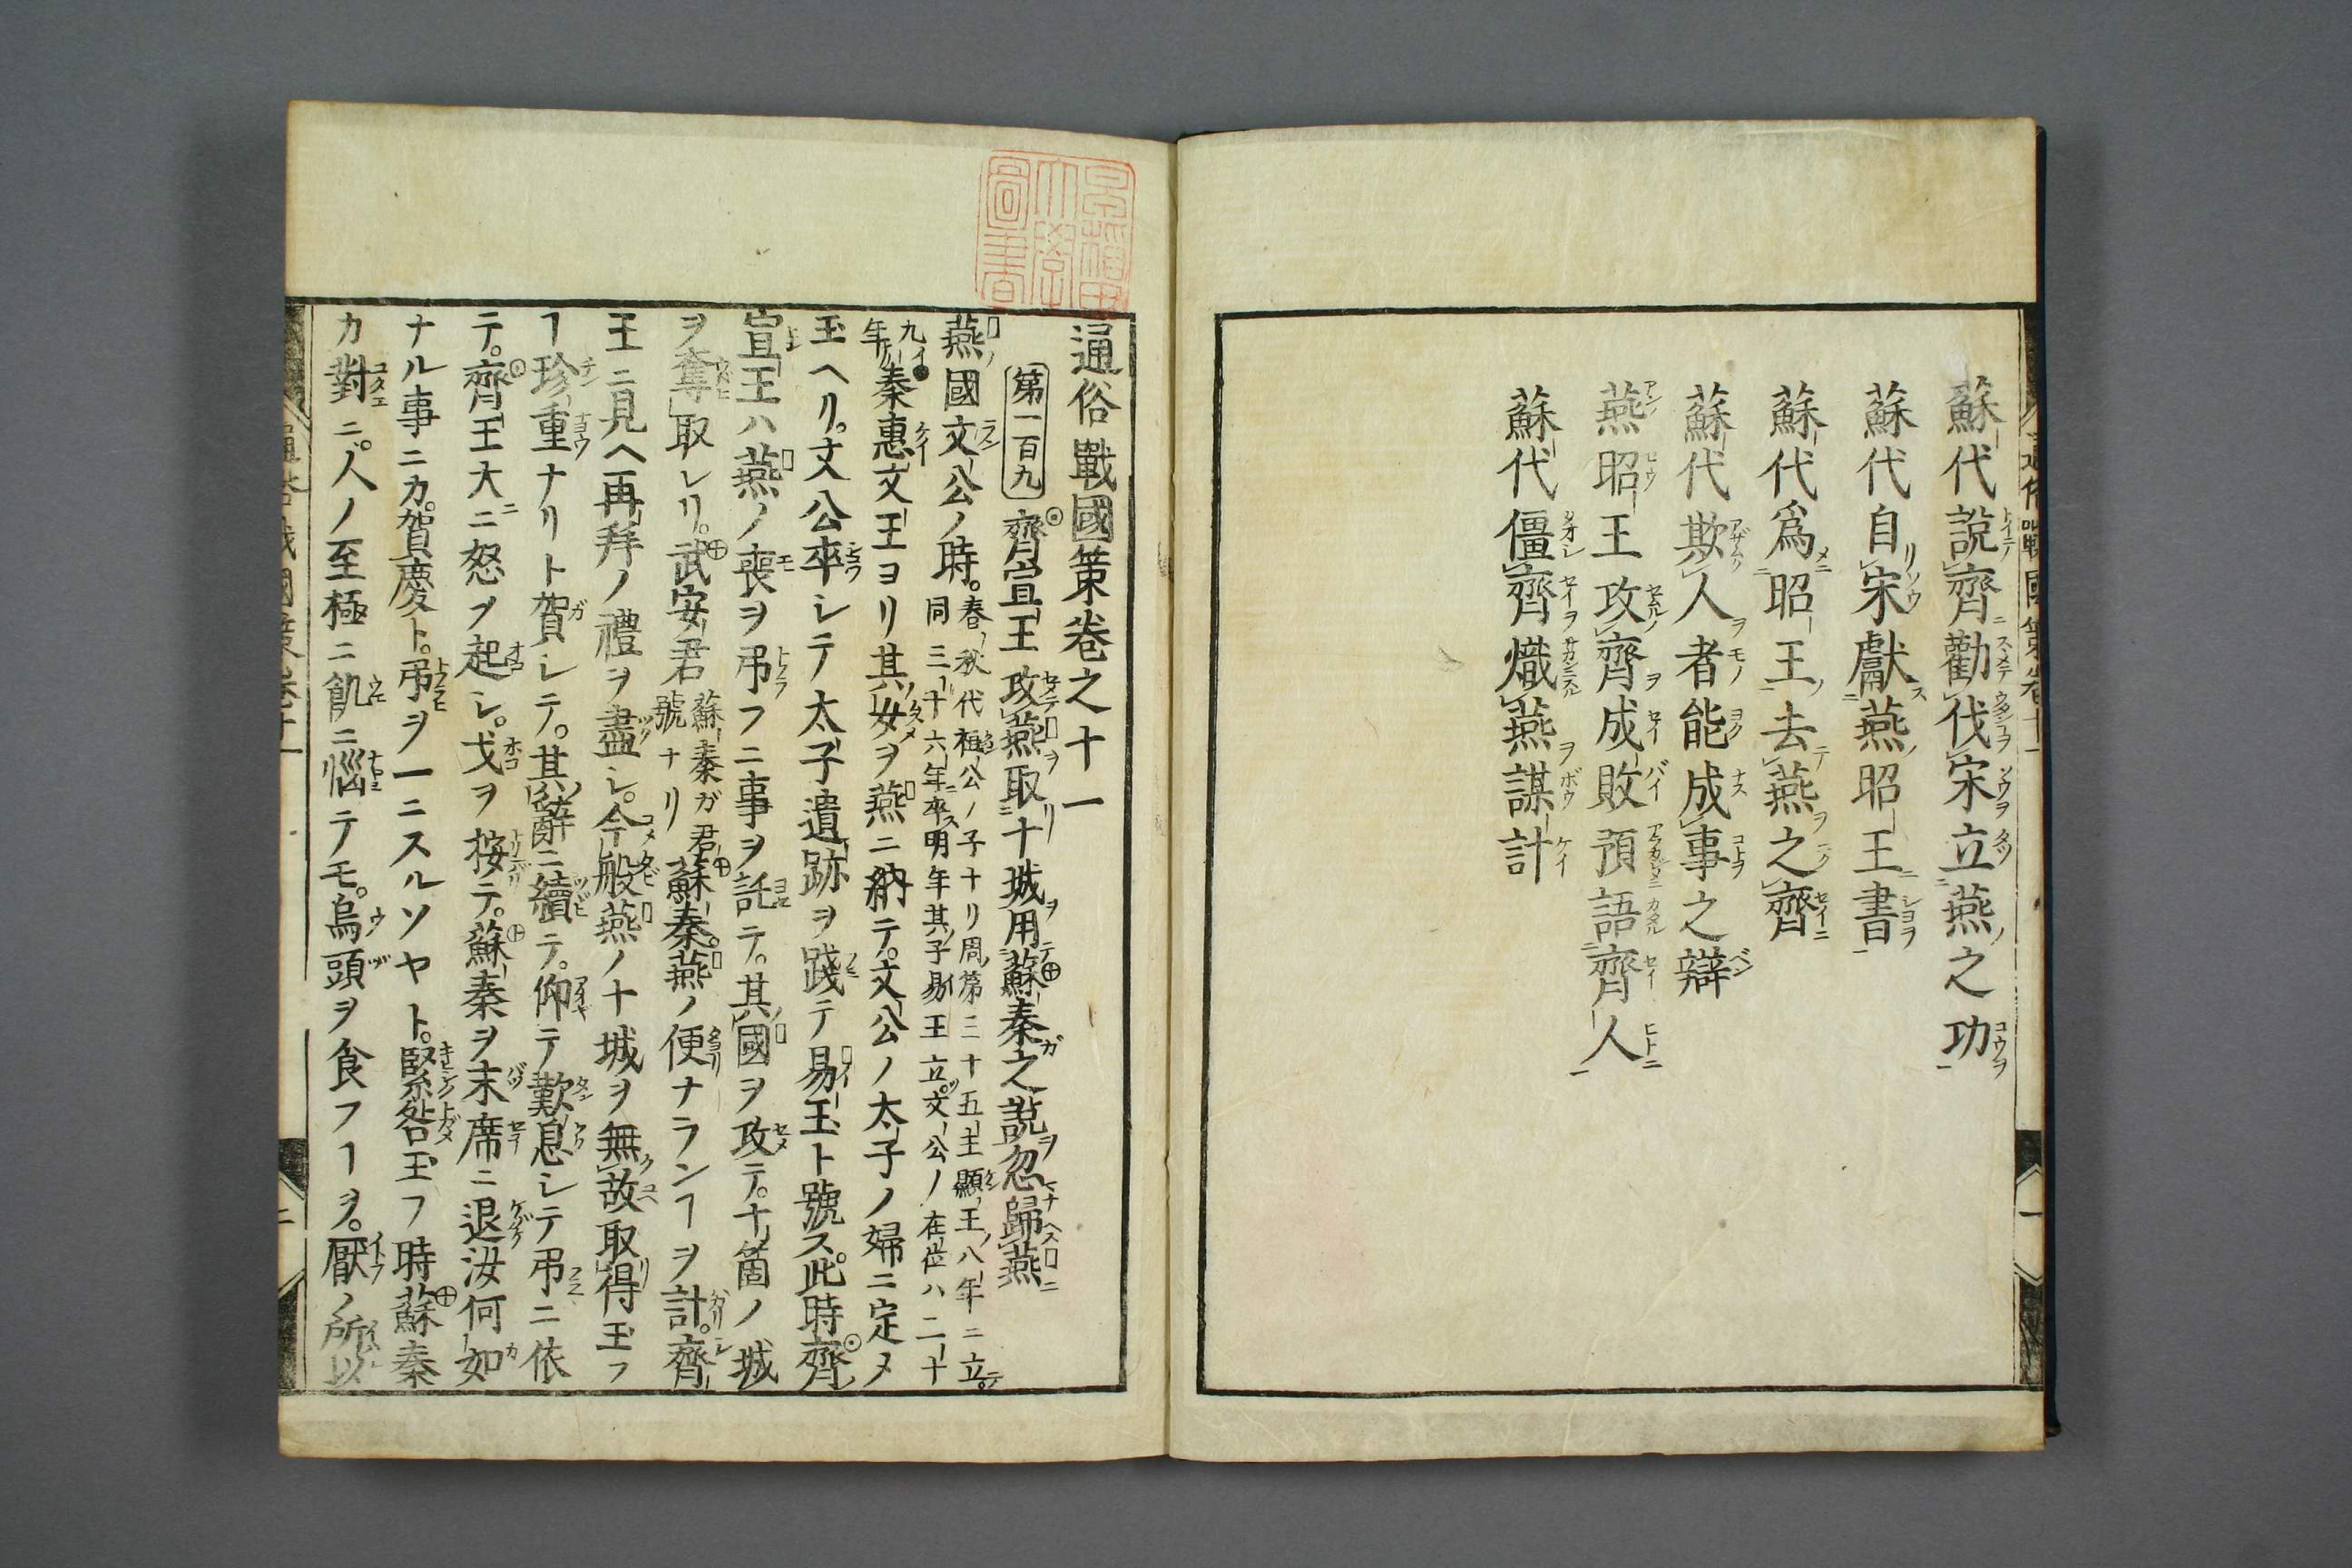 蘇代說齊勸伐宋立燕之功
蘇代自宋獻燕昭王書
蘇代爲昭王去燕之齊
蘇代欺人者能成事之辯
燕昭王攻齊成敗預語齊人
蘇代僵齊熾燕謀計
通俗戰國策卷之十一
第一百九 齊宣王攻燕取十城用蘇秦之說忽歸燕
燕國文公ノ時。春秋代桓公ノ子ナリ周第三十五主顯王八年ニ立。
同三十六年卒ス明年其子易王立。文公ノ在位ハ二十
九年秦惠文王ヨリ其女ヲ燕ニ納テ。文公ノ太子ノ婦ニ定メ
玉ヘリ。文公卒レテ太子遺跡ヲ踐テ易王ト號ス。此時齊
宣王ハ燕ノ喪ヲ弔フニ事ヲ託テ。其國ヲ攻テ。十箇ノ城
ヲ奪取レリ。武安君蘇秦ガ君號ナリ蘇秦。燕ノ便ナランヿヲ計。齊
王ニ見ヘ再拜ノ禮ヲ盡シ。今般燕ノ十城ヲ無故取得玉フ
ヿ珍重ナリト賀レテ。其辭ニ續テ。仰テ歎息レテ弔ニ依
テ。齊王大ニ怒ブ起シ。戈ヲ按テ。蘇秦ヲ末席ニ退汝何如
ナル事ニカ。賀慶ト。弔ヲ一ニスルソヤト。緊咎玉フ時蘇秦
カ對ニ。人ノ至極ニ飢ニ惱テモ。烏頭ヲ食フヿヲ。厭ノ所以
通俗戰國策卷十一
二